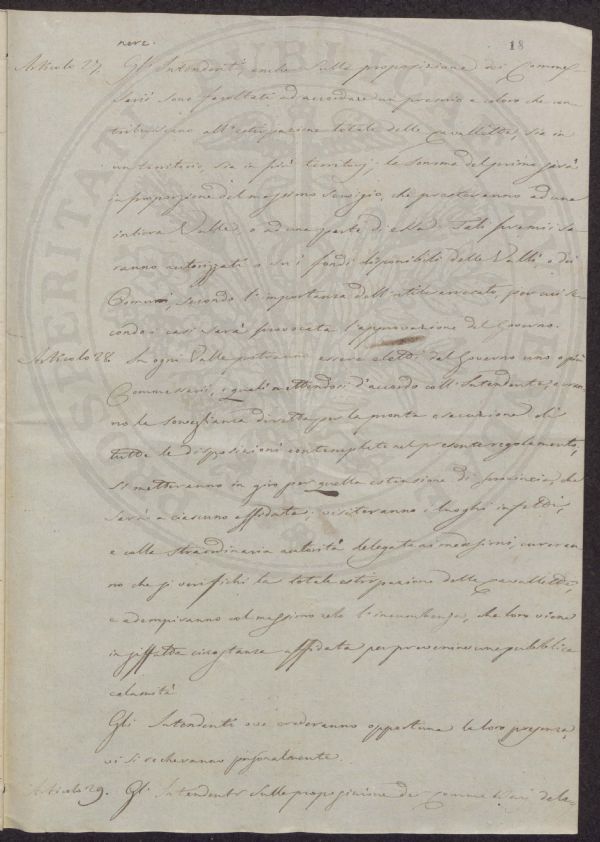 18
nere.
Articolo 27. Gl' Intendenti, anche sulla proposizione dei Commes-
sarii sono facoltati ad accordare un premio a coloro che con-
tribuiscano all' estirpazione totale delle cavallette, sia in
un territorio, sia in più territorj; la somma del premio sarà
in proporzione del massimo servigio, che presteranno ad una
intiera Valle, o ad una parte di essa. Tali premii sa-
ranno autorizzati o su i fondi disponibili delle Valli, o dei
Comuni, secondo l' importanza dell' utile arrecato, per cui se-
condo i casi sarà provocata l' approvazione del Governo.
Articolo 28. In ogni Valle potranno essere eletti dal Governo uno o più
Commessarii, i quali mettendosi d' accordo coll' Intendente, avran-
no la sorveglianza diretta per la pronta esecuzione di
tutte le disposizioni contemplate nel presente regolamento,
si metteranno in giro per quella estensione di provincia, che
sarà a ciascuno affidata; visiteranno i luoghi infetti,
e colla straordinaria autorità delegata ai medesimi, cureran-
no che si verifichi la totale estirpazione delle cavallette,
e adempiranno col massimo zelo l' incumbenza, che loro viene
in siffatta circostanza affidata per prevenire una pubblica
calamità
Gli Intendenti ove crederanno opportuna la loro presenza,
vi si recheranno personalmente.
Articolo 29. Gl' Intendenti sulla proposizione de' Commessarj dele-